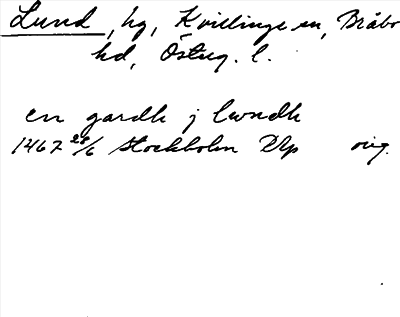 Lund, hg, Kvillinge sn, Bråbo
hd, Österg. l.
en gardh j lwndh
1467 28/6 Stockholm Dlp orig.